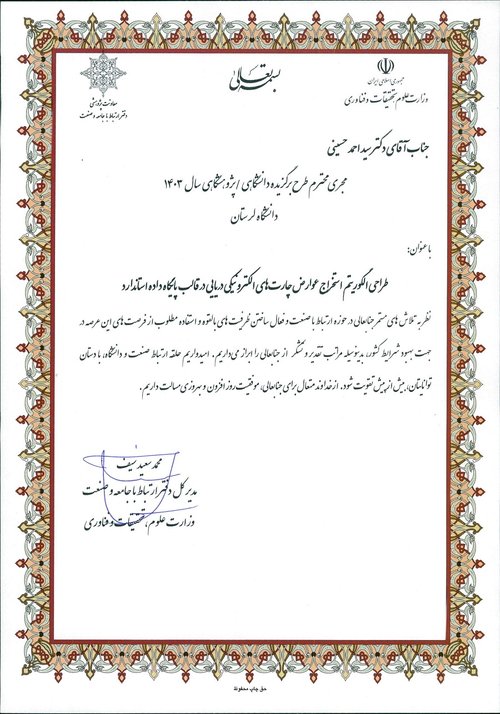 بسمه تعالی
جمهوری اسلامی ایران
وزارت علوم، تحقیقات و فناوری
معاونت پژوهشی
دفتر ارتباط با جامعه و صنعت
جناب آقای دکتر سید احمد حسینی
مجری محترم طرح برگزیده دانشگاهی / پژوهشگاهی سال ۱۴۰۳
دانشگاه لرستان
با عنوان:
طراحی الگوریتم استخراج عوارض چارت‌های الکترونیکی دریایی در قالب پایگاه داده استاندارد
نظر به تلاش های مستمر جنابعالی در حوزه ارتباط با صنعت و فعال ساختن ظرفیت های بالقوه و استفاده مطلوب از فرصت های این عرصه در
جهت بهبود شرایط کشور، بدینوسیله مراتب تقدیر و تشکر از جنابعالی را ابراز می‌داریم. امیدواریم حلقه ارتباط صنعت و دانشگاه، با دستان
توانایتان، بیش از پیش تقویت شود. از خداوند متعال برای جنابعالی، موفقیت روز افزون و بهروزی مسالت داریم.
محمد سعید سیف
مدیر کل دفتر ارتباط با جامعه و صنعت
وزارت علوم، تحقیقات و فناوری
حق چاپ محفوظ